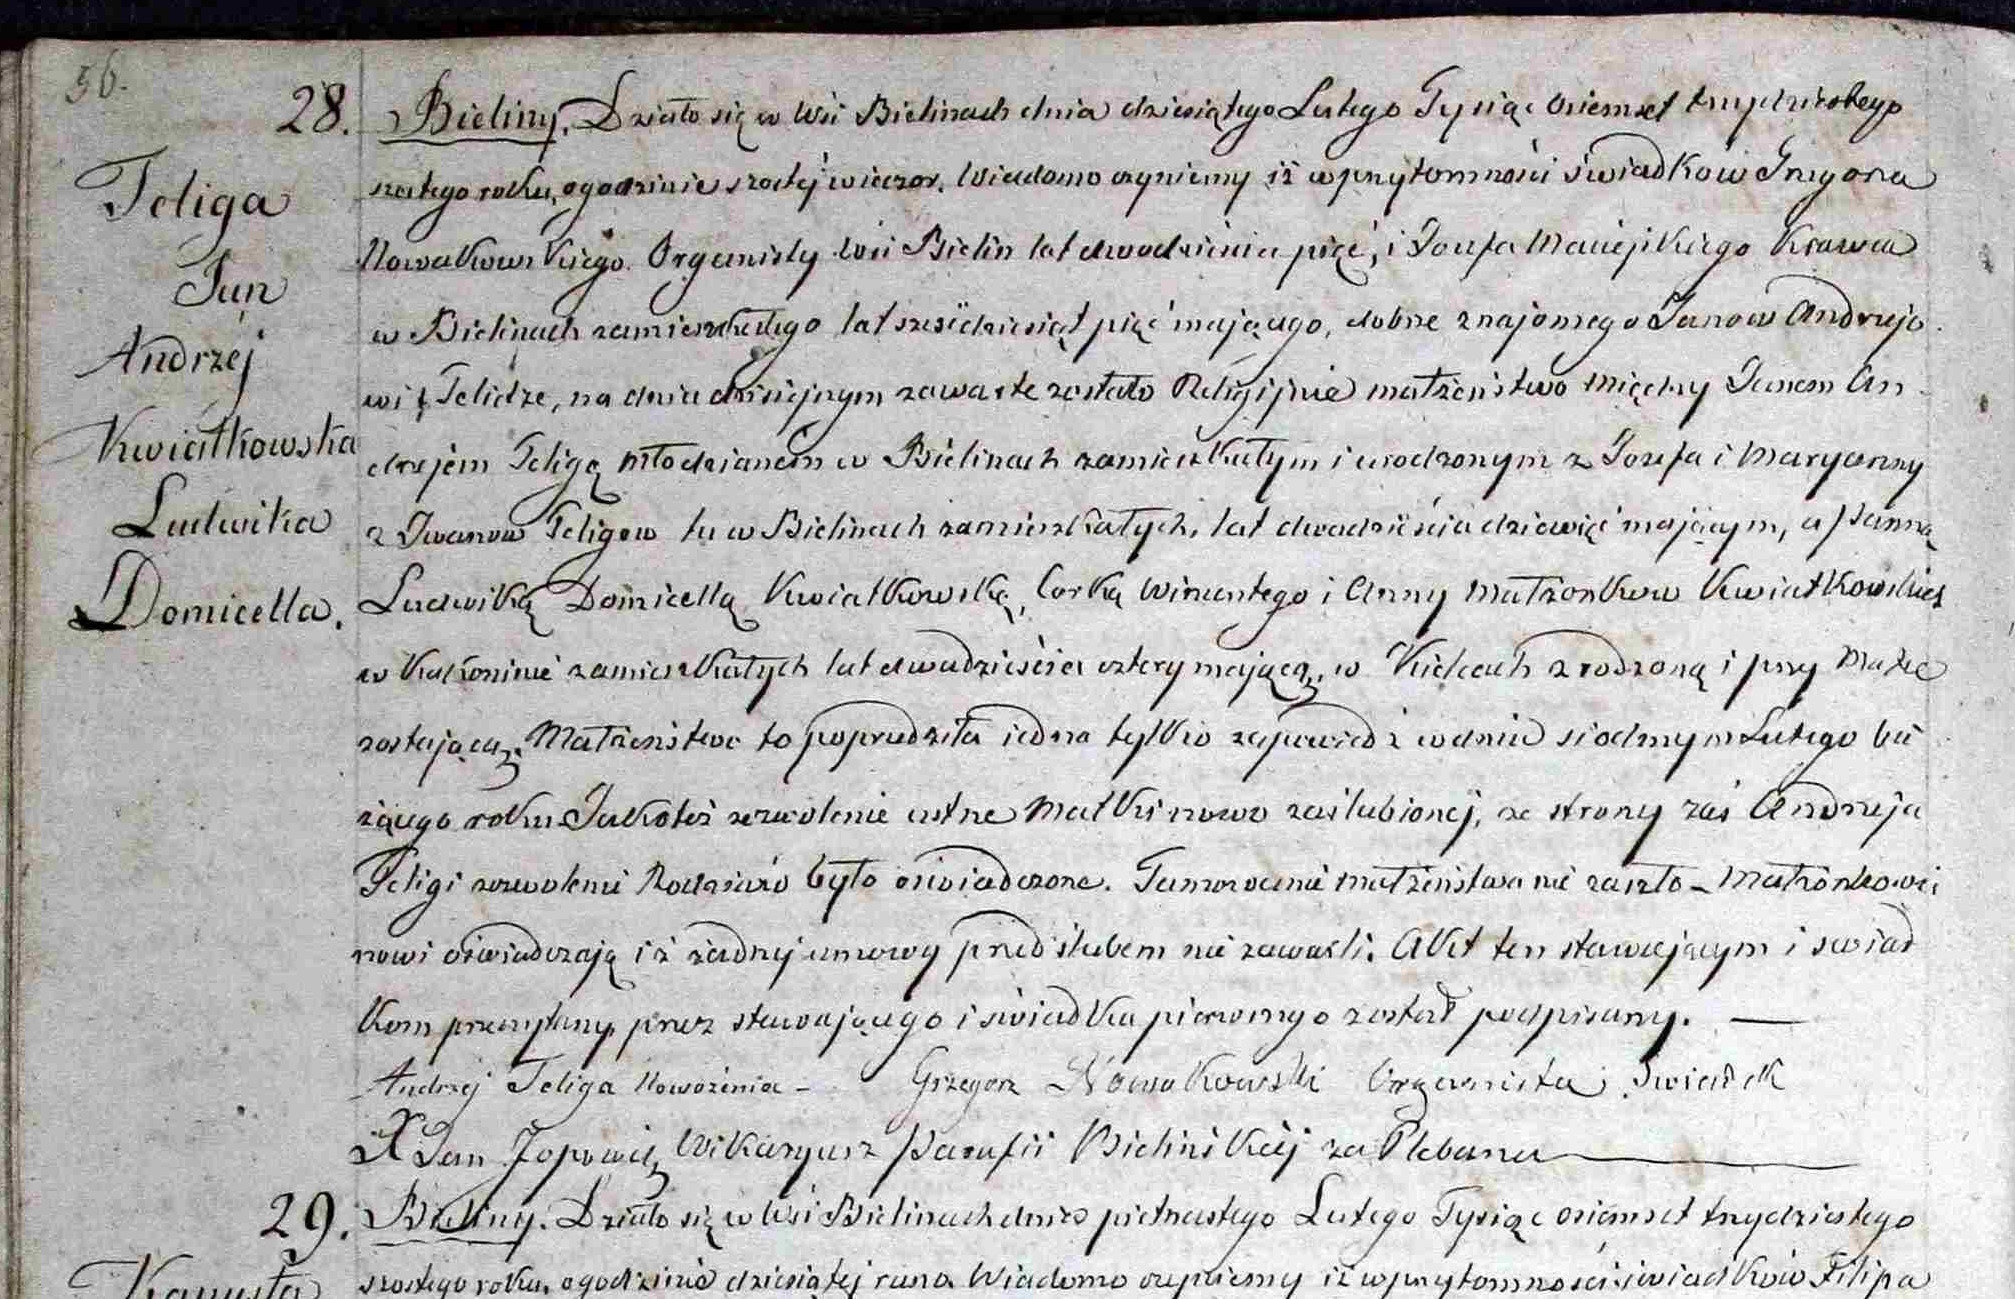 56.
28.
Teliga
Jan
Andrzéj
Kwiatkowska
Ludwika
Domicella.
Bieliny. Działo się w Wsi Bielinach dnia dziesiątego Lutego Tysiąc osiemset trzydziestego
szóstego roku, o godzinie szóstej wieczor. Wiadomo czyniemy iż w przytomności świadków Grzegorza
Nowakowskiego Organisty Wsi Bielin lat dwadzieścia pięć, i Józefa Maciejskiego Krawca
w Bielinach zamieszkałego lat sześćdziesiąt pięć mającego, dobrze znajomego Janow Andrzejo
wi Telidze, na dniu dzisiejszym zawarte zostało Religijnie małżeństwo między Janem An
drzejem Teligą Młodzianem w Bielinach zamieszkałym i urodzonym z Józefa i Maryanny
z Iwanow Teligow tu w Bielinach zamieszkałych, lat dwadzieścia dziewięć mającym, a Panną
Ludwiką Domicellą Kwiatkowską, Corką Wincentego i Anny Małżonkow Kwiatkowskich
w Kakoninie zamieszkałych lat dwadzieścia cztery mającą, w Kielcach zrodzoną i przy Matce
zostającą. Małżeństwo to poprzedziła iedna tylko zapowiedź w dniu siodmym Lutego bie
żącego roku Jakoteż zezwolenie ustne Matki nowo zaślubionej, ze strony zaś Andrzeja
Teligi zezwolenie Rodziców było oświadczone. Tamowanie małżeństwa nie zaszło – Małżonkowie
nowi oświadczają iż żadnej umowy przed ślubem nie zawarli. Akt ten stawającym i świad
kom przeczytany, przez stawającego i świadka pierwszego został podpisany. —
Andrzej Teliga Nowożenia – Grzegorz Nowakowski Organista Swiadek
X Jan Wikaryusz Parafii Bielińskiéj za Plebana
29.
Bieliny. Działo się w Wsi Bielinach dnia pietnastego Lutego Tysiąc osiemset trzydziestego
szóstego roku, o godzinie dziesiątej rano Wiadomo czyniemy iż w przytomności świadków Filipa